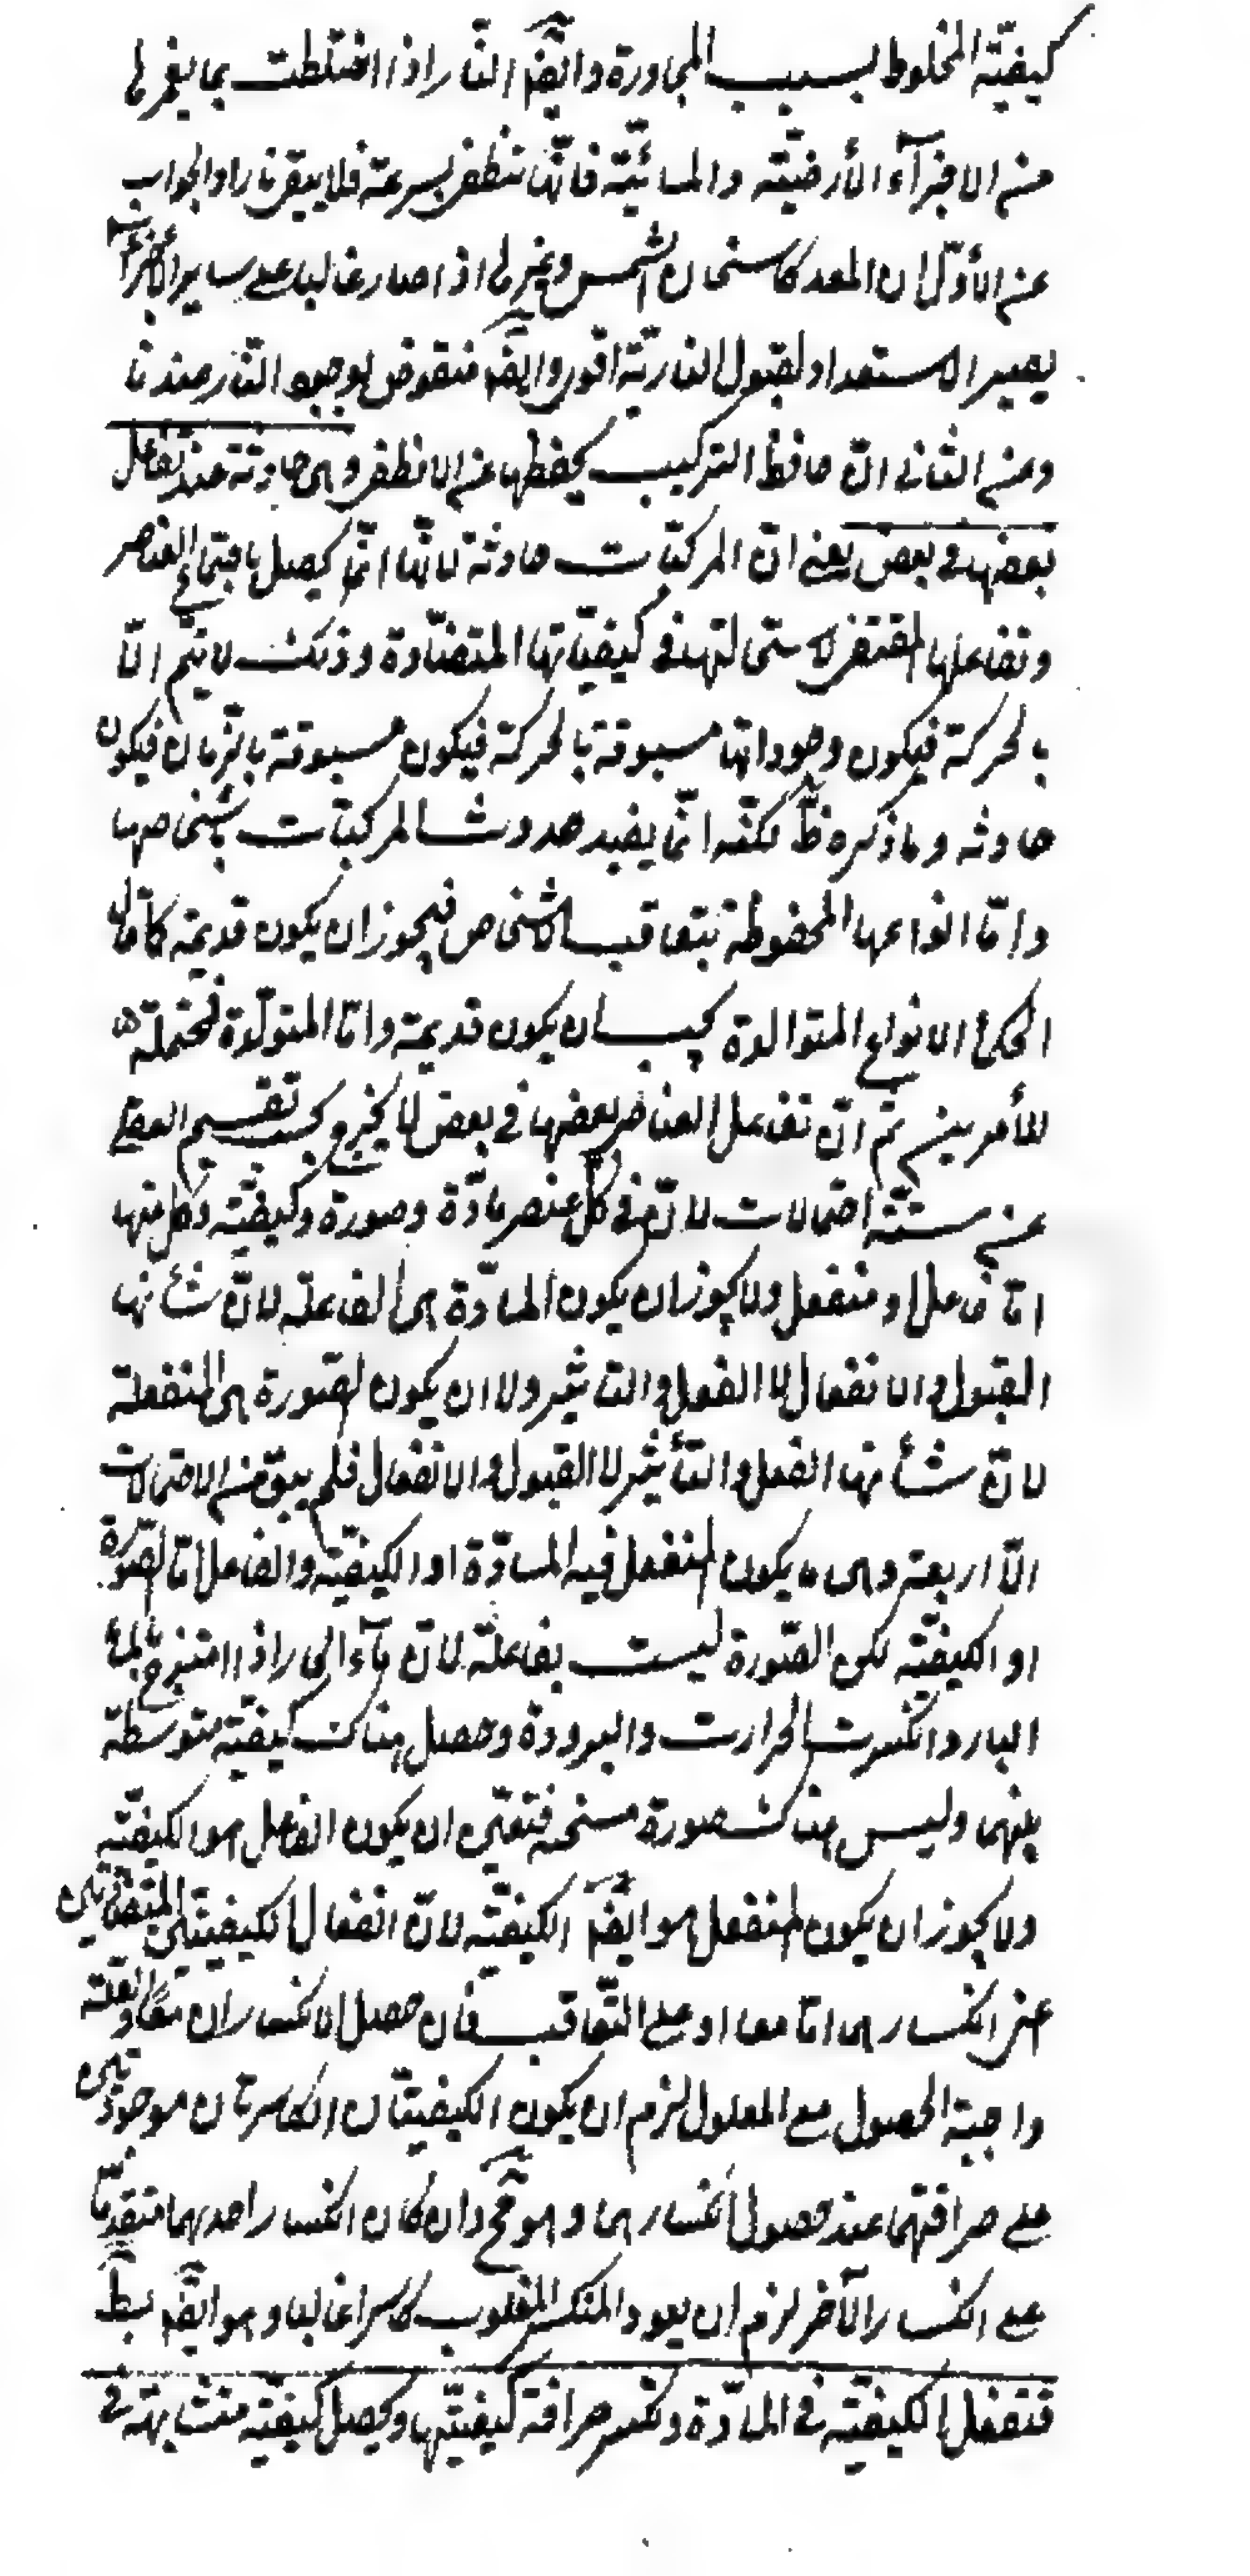 كيفيّة المخلوط بسبب المجاورة وايضا النّار اذا اختلطت بما يغمرها
من الاجزآء الأرضيّة والمائيّة فانّها تنطفى بسرعة فلا يبقى نارا والجواب
عن الأوّل ان المعد كاسخان الشمس وغيرها اذا صار غالبا على ساير الأجزاء
يصير الاستعداد لقبول الناريّة اقوى وايضا منقوض بوجود النّار عندنا
وعن الثانى انّ حافظ التركيب يحفظها عن الانطفاء وهى حادثة عند تفاعل
بعضها فى بعض يعنى انّ المركّبات حادثة لانّها انّما يحصل باجتماع العناصر
وتفاعلها المقتضى لاستحالتها فى كيفيّاتها المتضادّة وذلك لا يتم الّا
بالحركة فيكون وجوداتها مسبوقة بالحركة فيكون مسبوقة بالزمان فيكون
حادثة وما ذكره ظّ لكنّه انّما يفيد حدوث المركبّات باشخاصها
وامّا انواعها المحفوظة بتعاقب الاشخاص فيجوز ان يكون قديمة كما قال
الحكماء الانواع المتوالدة يجب ان يكون قديمة وامّا المتولّدة فمحتملة
للأمرين ثم انّ تفاعل العناصر بعضها فى بعض لا يخرج بحسب تقسيم العقل
عن ستّة احتمالات لانّ فى كلّ عنصر مادّة وصورة وكيفيّة وكل منها
امّا فاعل او منفعل ولا يجوز ان يكون المادّة هى الفاعلة لانّ شأنها
القبول والانفعال لا الفعل والتاثير ولا ان يكون الصّورة هى المنفعلة
لانّ شأنها الفعل والتأثير لا القبول والانفعال فلم يبق من الاحتمالات
الّا اربعة وهى ما يكون المنفعل فيه المادّة او الكيفيّة والفاعل امّا الصّورة
او الكيفيّة لكن الصّورة ليست بفاعلة لانّ مآء الحار اذا امتزج بالماء
البارد انكسرت الحرارت والبرودة وحصل هناك كيفيّة متوسّطة
بينهما وليس هناك صورة مسخنه فتعيّن ان يكون الفاعل هو الكيفيّة
ولا يجوز ان يكون المنفعل هو ايضا الكيفيّة لانّ انفعال الكيفيتين المتضادّتين
اعنى انكسارهما امّا معا او على التّعاقب فان حصل الانكساران معًا والعلّة
واجبة الحصول مع المعلول لزم ان يكون الكيفيتان الكاسرتان موجودتين
على صرافتهما عند حصول انكسارهما وهو مح وان كان انكسار احدهما متقدّما
على انكسار الآخر لزم ان يعود المنكسر المغلوب كاسرا غالبا وهو ايضا بط
فتفعل الكيفيّة فى المادّة وتكسر صرافة كيفيّتها ويحصل كيفيّة متشابهة فى